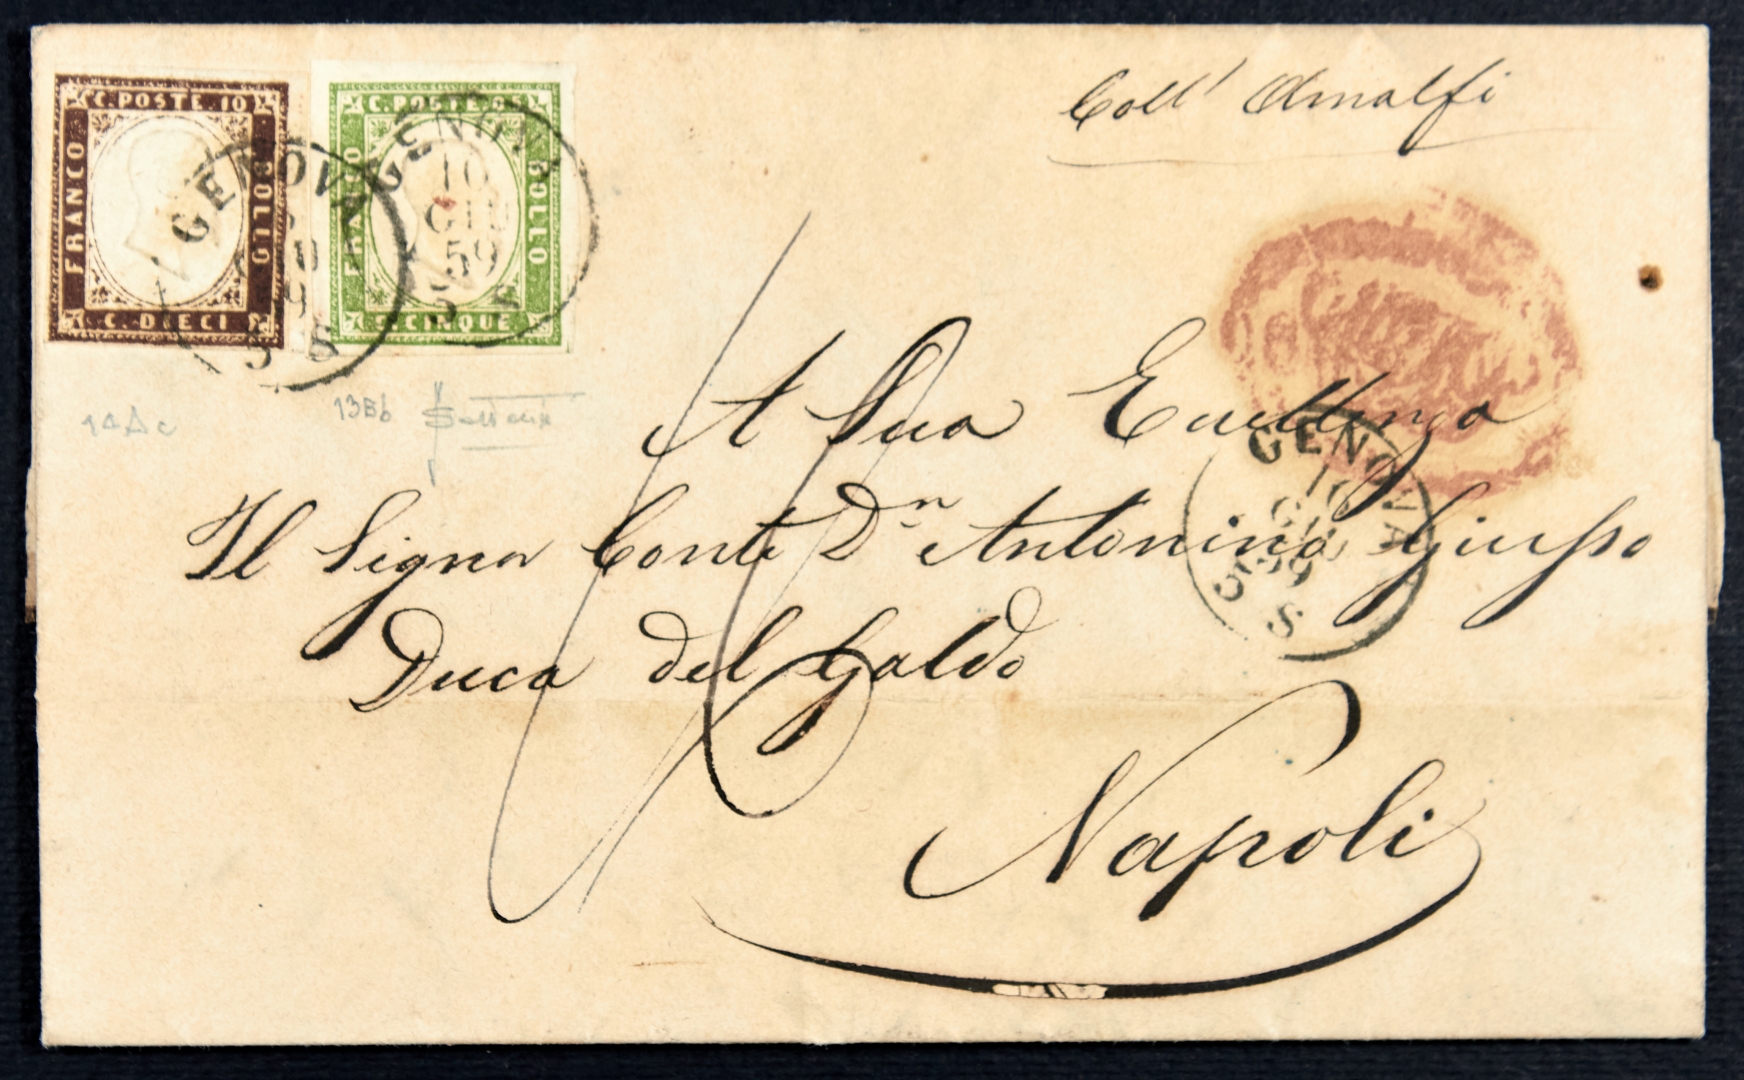 Coll' Amalfi
C. POSTE. 10
FRANCO
BOLLO
C. DIECI
C. POSTE. 5
FRANCO
BOLLO
C. CINQUE
GENOVA
5 S
GENOVA
10
GIU
59
5 S
13Bb
A Sua Eccellenza
Il Signor Conte Dn Antonino Giusso
Duca del Galdo
Napoli
GENOVA
10
GIU
59
5 S